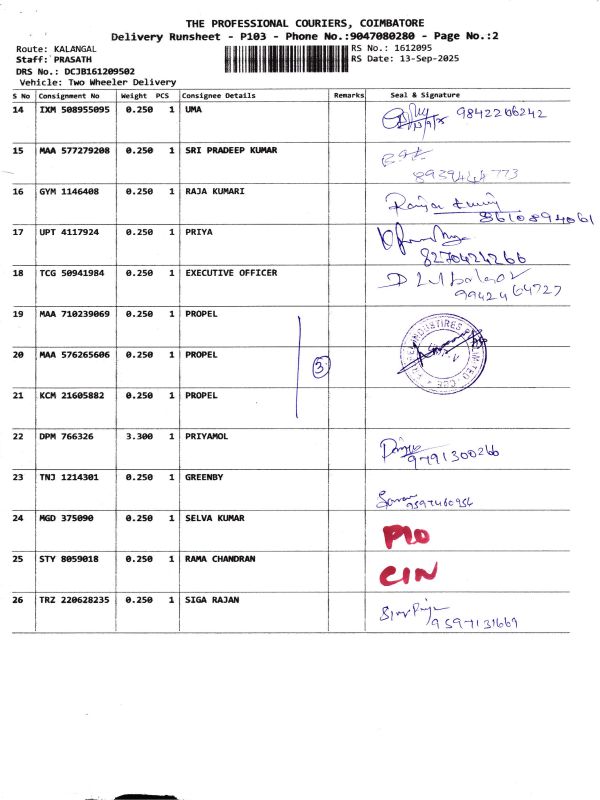 THE PROFESSIONAL COURIERS, COIMBATORE
Delivery Runsheet - P103 - Phone No.:9047080280 - Page No.:2
Route: KALANGAL RS No.: 1612095
Staff: PRASATH RS Date: 13-Sep-2025
DRS No.: DCJB161209502
Vehicle: Two Wheeler Delivery
S No Consignment No Weight PCS Consignee Details Remarks Seal & Signature
14 IXM 508955095 0.250 1 UMA 9842206242
15 MAA 577279208 0.250 1 SRI PRADEEP KUMAR
8939444773
16 GYM 1146408 0.250 1 RAJA KUMARI
8610894061
17 UPT 4117924 0.250 1 PRIYA
8270424266
18 TCG 50941984 0.250 1 EXECUTIVE OFFICER
9942464727
19 MAA 710239069 0.250 1 PROPEL
20 MAA 576265606 0.250 1 PROPEL 3
21 KCM 21605882 0.250 1 PROPEL
22 DPM 766326 3.300 1 PRIYAMOL
9791300266
23 TNJ 1214301 0.250 1 GREENBY
9597460954
24 MGD 375090 0.250 1 SELVA KUMAR PLO
25 STY 8059018 0.250 1 RAMA CHANDRAN CIN
26 TRZ 220628235 0.250 1 SIGA RAJAN
9597131669